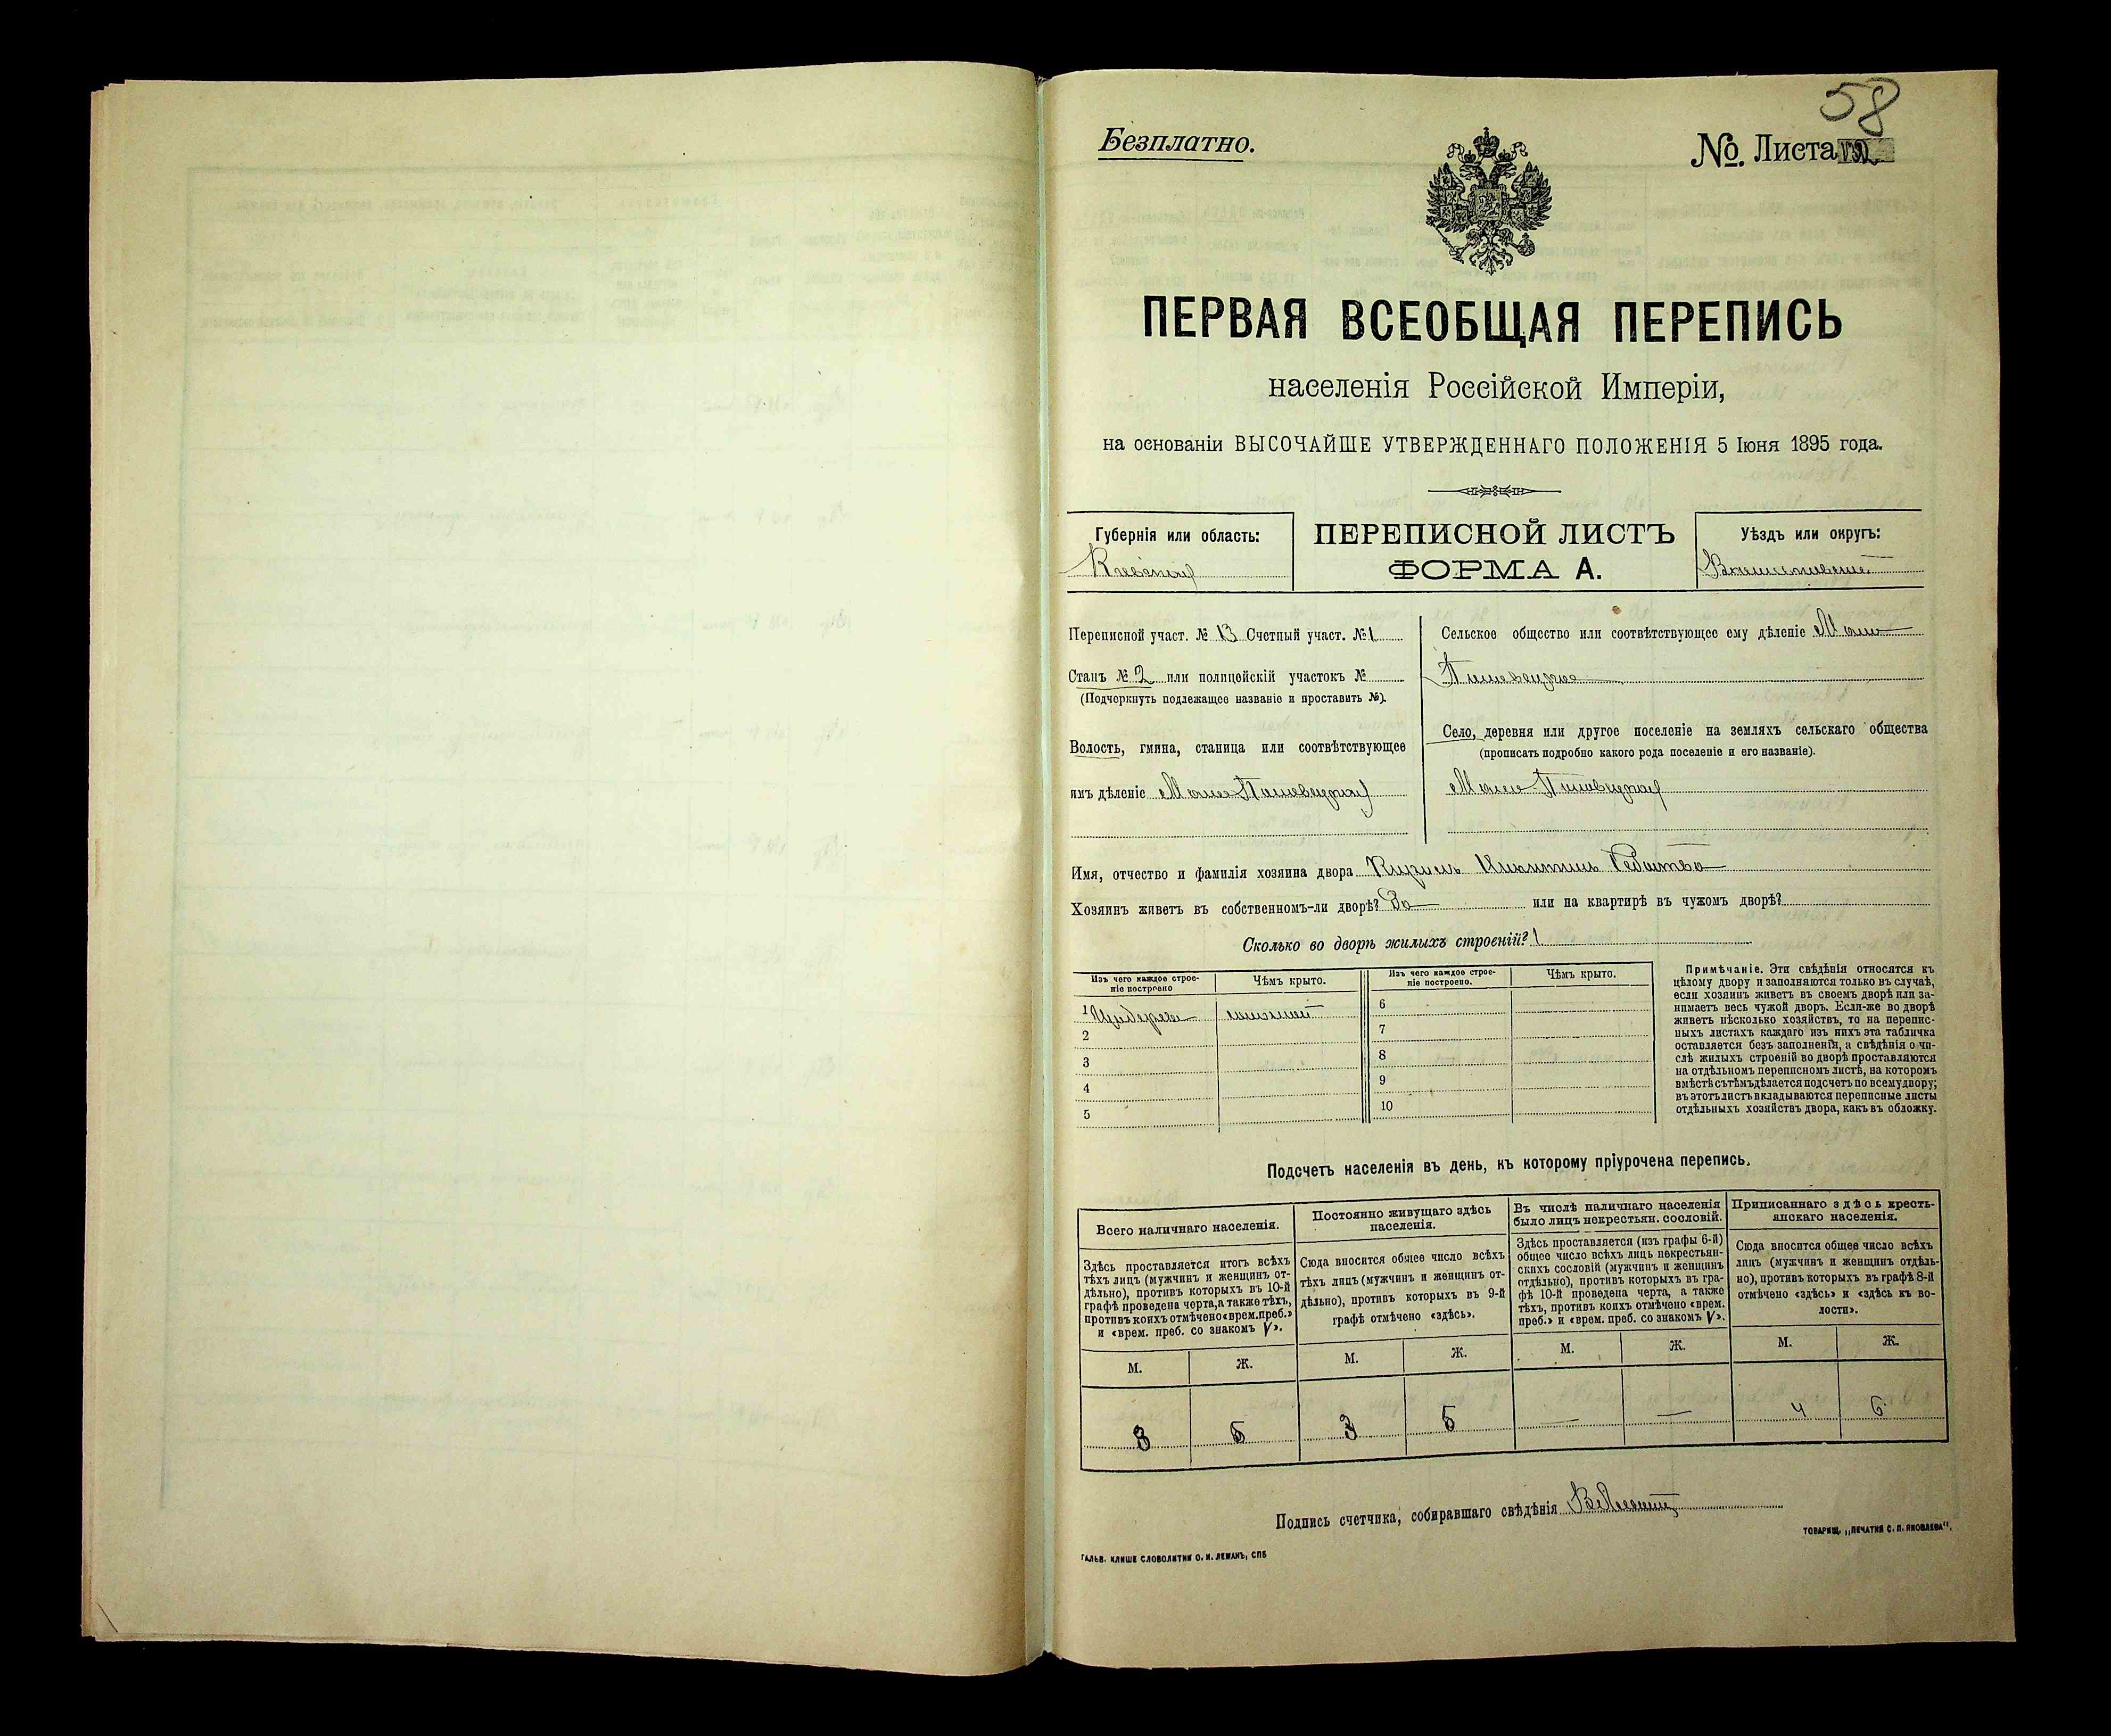 58
Безплатно.
№. Листа
ПЕРВАЯ ВСЕОБЩАЯ ПЕРЕПИСЬ
населенія Россійской Имперіи,
на основаніи ВЫСОЧАЙШЕ УТВЕРЖДЕННАГО ПОЛОЖЕНІЯ 5 Іюня 1895 года.
Губернія или область:
Кіевская
ПЕРЕПИСНОЙ ЛИСТЪ
ФОРМА А.
Уѣздъ или округъ:
Переписной участ. № 13 Счетный участ. № 1
Станъ № 2 или полицейскій участокъ №
(Подчеркнуть подлежащее названіе и проставить №).
Волость, гмина, станица или соотвѣтствующее
имъ дѣленіе Мало-Половецкая
Сельское общество или соотвѣтствующее ему дѣленіе Мало
Половецкое
Село, деревня или другое поселеніе на земляхъ сельскаго общества
(прописать подробно какого рода поселеніе и его названіе).
Мало-Половецкая
Имя, отчество и фамилія хозяина двора
Хозяинъ живетъ въ собственномъ-ли дворѣ? Да или на квартирѣ въ чужомъ дворѣ?
Сколько во дворѣ жилыхъ строеній? 1
Изъ чего каждое строе-
ніе построено
Чѣмъ крыто.
Изъ чего каждое строе-
ніе построено.
Чѣмъ крыто.
1 соломой
2
3
4
5
6
7
8
9
10
Примѣчаніе. Эти свѣдѣнія относятся къ
цѣлому двору и заполняются только въ случаѣ,
если хозяинъ живетъ въ своемъ дворѣ или за-
нимаетъ весь чужой дворъ. Если-же во дворѣ
живетъ нѣсколько хозяйствъ, то на перепис-
ныхъ листахъ каждаго изъ нихъ эта табличка
оставляется безъ заполненія, а свѣдѣнія о чи-
слѣ жилыхъ строеній во дворѣ проставляются
на отдѣльномъ переписномъ листѣ, на которомъ
вмѣстѣ съ тѣмъ дѣлается подсчетъ по всему двору;
въ этотъ листъ вкладываются переписные листы
отдѣльныхъ хозяйствъ двора, какъ въ обложку.
Подсчетъ населенія въ день, къ которому пріурочена перепись.
Всего наличнаго населенія.
Здѣсь проставляется итогъ всѣхъ
тѣхъ лицъ (мужчинъ и женщинъ от-
дѣльно), противъ которыхъ въ 10-й
графѣ проведена черта, а также тѣхъ,
противъ коихъ отмѣчено «врем. преб.»
и «врем. преб. со знакомъ V».
Постоянно живущаго здѣсь
населенія.
Сюда вносится общее число всѣхъ
тѣхъ лицъ (мужчинъ и женщинъ от-
дѣльно), противъ которыхъ въ 9-й
графѣ отмѣчено «здѣсь».
Въ числѣ наличнаго населенія
было лицъ некрестьян. сословій.
Здѣсь проставляется (изъ графы 6-й)
общее число всѣхъ лицъ некрестьян-
скихъ сословій (мужчинъ и женщинъ
отдѣльно), противъ которыхъ въ гра-
фѣ 10-й проведена черта, а также
тѣхъ, противъ коихъ отмѣчено «врем.
преб.» и «врем. преб. со знакомъ V».
Приписаннаго здѣсь кресть-
янскаго населенія.
Сюда вносится общее число всѣхъ
лицъ (мужчинъ и женщинъ отдѣль-
но), противъ которыхъ въ графѣ 8-й
отмѣчено «здѣсь» и «здѣсь къ во-
лости».
М. Ж. М. Ж. М. Ж. М. Ж.
3 5 3 5 — — 4 6
Подпись счетчика, собиравшаго свѣдѣнія
ГАЛЬВ. КЛИШЕ СЛОВОЛИТНИ О. И. ЛЕМАНЪ, СПБ
ТОВАРИЩ. „ПЕЧАТНЯ С. П. ЯКОВЛЕВА".